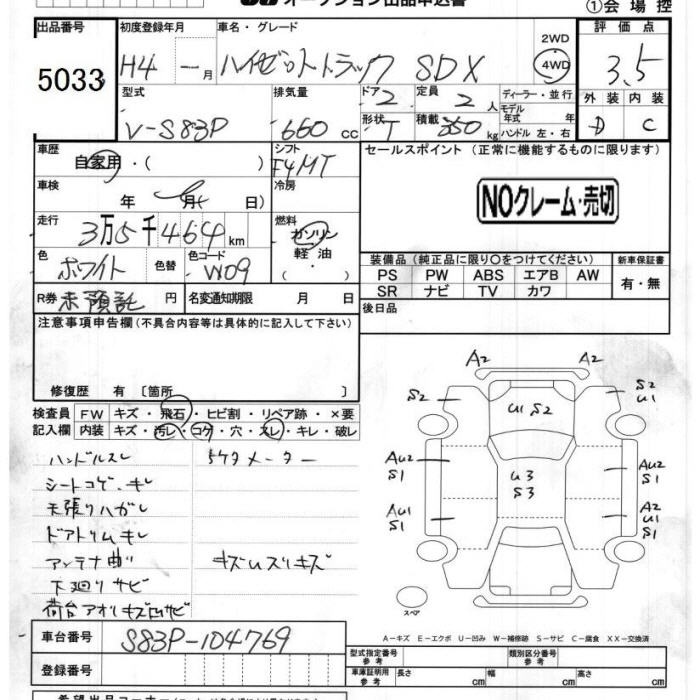 オークション出品申込書
①会場控
出品番号 初度登録年月 車名・グレード 評価点
5033 H4 ー月 ハイゼットトラック SDX 2WD 4WD 3.5
型式 排気量 ドア 定員 ディーラー・並行 外装 内装
V-S83P 660cc 2 2人 モデル年式 年 D C
形状 T 積載 350kg ハンドル 左・右
車歴 シフト セールスポイント(正常に機能するものに限ります)
自家用・( ) F4MT
車検 冷房
年 月 NOクレーム・売切
走行 燃料
3万5千464km ガソリン
軽油
・( )
色 色替 色コード
ホワイト W09
装備品(純正品に限り○をつけてください) 新車保証書
PS PW ABS エアB AW 有・無
SR ナビ TV カワ
R券 未預託 円 名変通知期限 月 日 後日品
注意事項申告欄(不具合内容等は具体的に記入して下さい)
修復歴 有〔箇所 〕
検査員 FW キズ・飛石・ヒビ割・リペア跡・×要
記入欄 内装 キズ・汚レ・コゲ・穴・スレ・キレ・破レ
ハンドルスレ 5ケタメーター
シートコゲ・キレ
天張りハガレ
ドアトリムキレ
アンテナ曲り キズUスリキズ
下廻りサビ
荷台アオリキズ凹サビ
A2 A2
S2 U1 S2 S2 U1
AU2 S1 U3 S3 AU2 S1
AU1 S1 A2 U1 S1
スペア
A-キズ E-エクボ U-凹み W-補修跡 S-サビ C-腐食 XX-交換済
車台番号 S83P-104769
登録番号
型式指定番号 参考 類別区分番号 参考
車庫証明用 参考 長さ cm 幅 cm 高さ cm